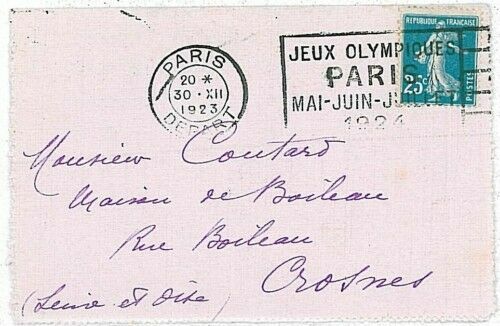 PARIS
20 *
30 · XII
1923
DEPART
JEUX OLYMPIQUES
PARIS
MAI-JUIN-JUILLET
1924
REPUBLIQUE FRANÇAISE
25c
POSTES
Monsieur Coutard
Maison de Boileau
Rue Boileau
Crosnes
(Seine et Oise)